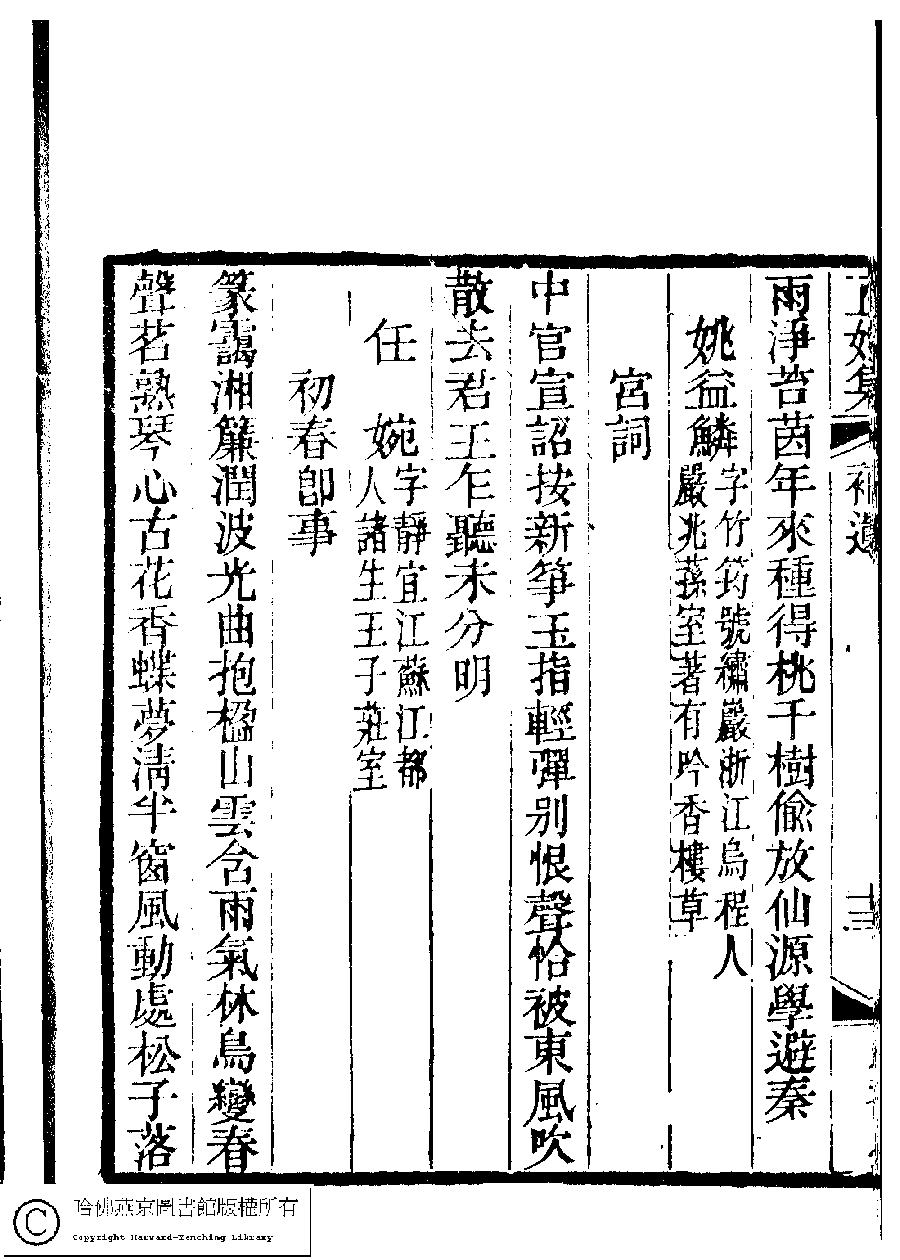 正始集 補遺
雨淨苔茵年來種得桃千樹偸放仙源學避秦
姚益鱗
字竹筠號繡巖浙江烏程人
嚴兆蓀室著有吟香樓草
宮詞
中官宣詔按新箏玉指輕彈別恨聲恰被東風吹
散去君王乍聽未分明
任 婉
字靜宜江蘇江都
人諸生王子莊室
初春卽事
篆靄湘簾潤波光曲抱楹山雲含雨氣林鳥變春
聲茗熟琴心古花香蝶夢淸半窗風動處松子落
哈佛燕京圖書館版權所有
Copyright Harvard-Yenching Library